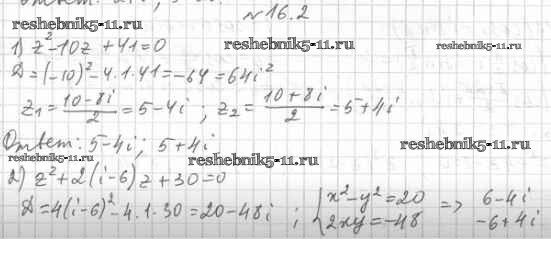 №16.2
reshebnik5-11.ru
1) z²-10z+41=0
reshebnik5-11.ru reshebnik5-11.ru
D=(-10)²-4·1·41=-64=64i²
z₁=(10-8i)/2=5-4i ; z₂=(10+8i)/2=5+4i
Ответ: 5-4i; 5+4i
reshebnik5-11.ru reshebnik5-11.ru reshebnik5-11.ru
2) z²+2(i-6)z+30=0
D=4(i-6)²-4·1·30=20-48i ; {x²-y²=20 2xy=-48 => 6-4i -6+4i